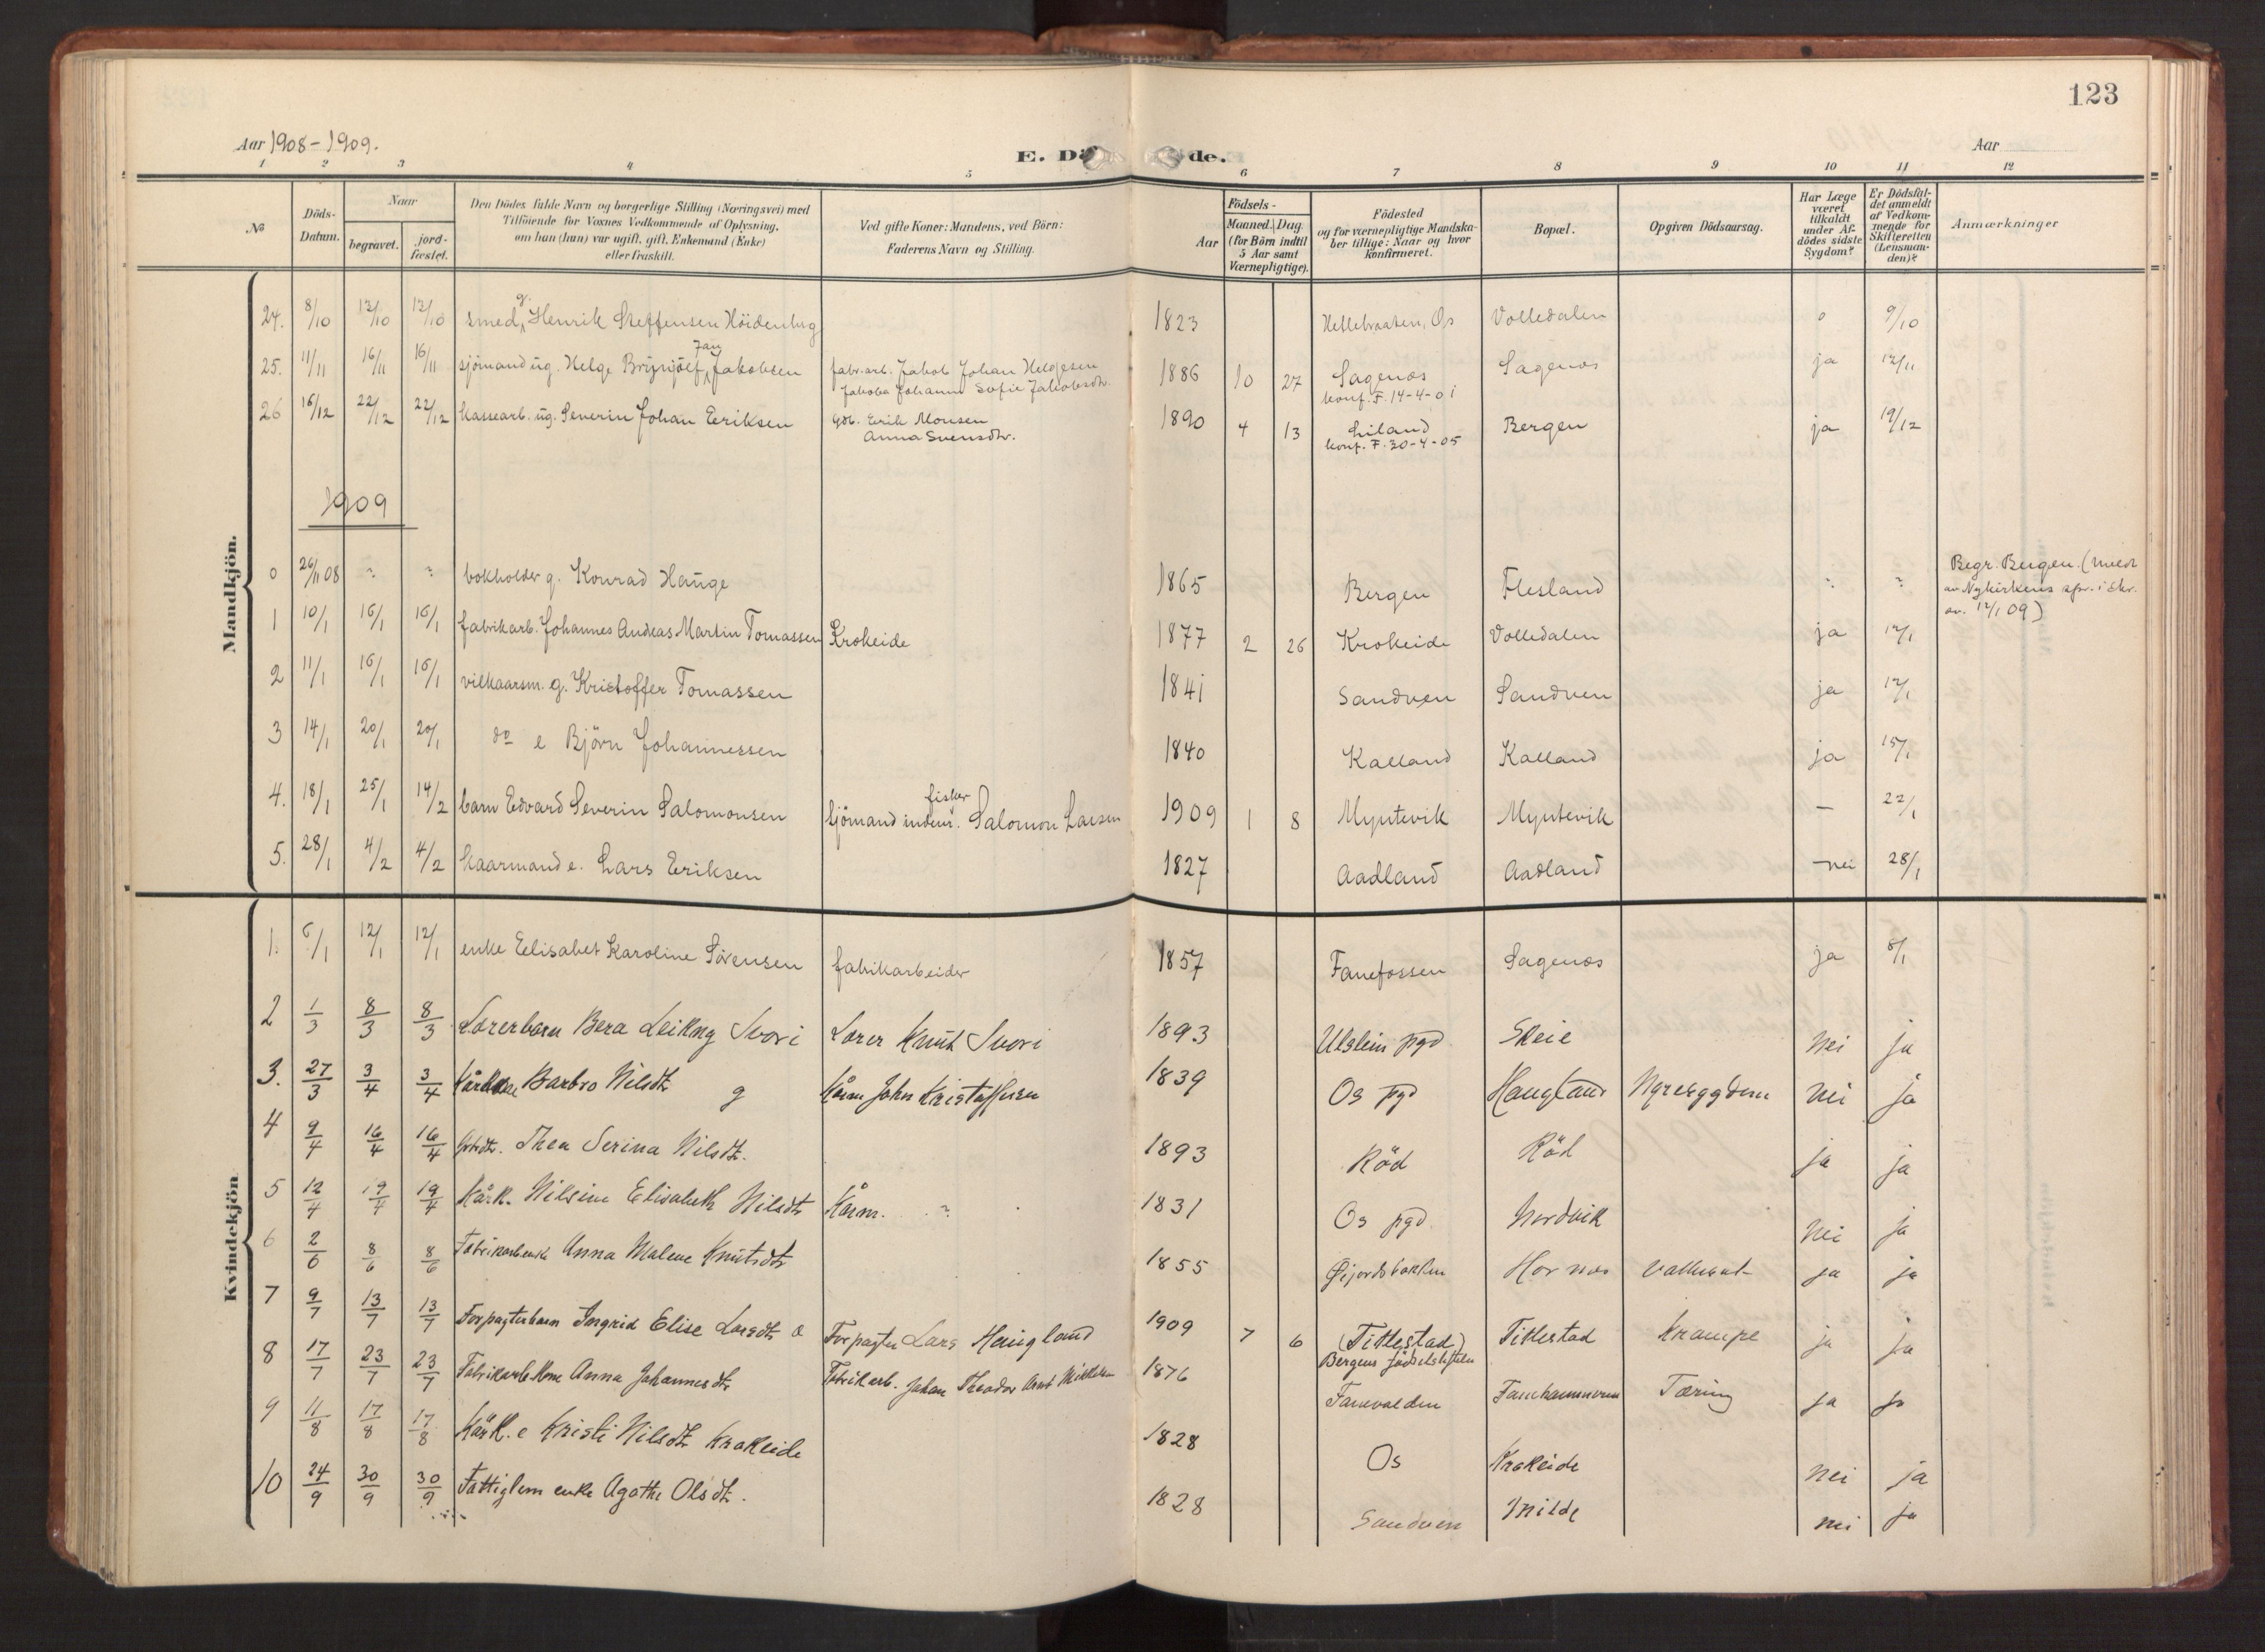 123
Aar 1908-1909.
E. Dö de.
Aar
1 2 3 4 5 6 7 8 9 10 11 12
No
Döds-Datum.
Naar
begravet.
jord-fæstet.
Den Dödes fulde Navn og borgerlige Stilling (Næringsvei) med
Tilföiende for Voxnes Vedkommende af Oplysning,
om han (hun) var ugift, gift, Enkemand (Enke)
eller fraskilt.
Ved gifte Koner: Mandens, ved Börn:
Faderens Navn og Stilling.
Födsels-
Aar
Maaned. Dag.
(for Börn indtil
5 Aar samt
Værnepligtige).
Födested
og for værnepligtige Mandska-
ber tillige: Naar og hvor
konfirmeret.
Bopæl.
Opgiven Dödsaarsag.
Har Læge
været
tilkaldt
under Af-
dödes sidste
Sygdom?
Er Dödsfal-
det anmeldt
af Vedkom-
mende for
Skifteretten
(Lensman-
den)?
Anmærkninger
Mandkjön.
24. 8/10 13/10 13/10 smed, g. Henrik Steffensen Höidenhug 1823 Hettebraaten, Os Volledalen o 9/10
25. 11/11 16/11 16/11 sjömand ug. Helge Brynjölf Jan Jakobsen fabr.arb. Jakob Johan Helgesen 1886 10 27 Sagenos Sagenos ja 12/11
Jakoba Johanna Sofie Jakobsdtr. konf. F. 14-4-01
26 16/12 22/12 22/12 kassearb. ug. Severin Johan Eriksen gdb. Erik Monsen 1890 4 13 Liland Bergen ja 19/12
Anna Svensdtr. konf. F. 30-4-05
1909
0 26/11 08 ? ? bokholder g. Konrad Hauge 1865 Bergen Flesland ? ? Begr. Bergen. (meldt
av Nykirkens spr. i skr.
av. 12/1 09)
1 10/1 16/1 16/1 fabrikarb. Johannes Andreas Martin Tomassen Krokeide 1877 2 26 Krokeide Volledalen ja 12/1
2 11/1 16/1 16/1 vilkaarsm. g. Kristoffer Tomassen 1841 Sandven Sandven ja 12/1
3 14/1 20/1 20/1 do e Björn Johannessen 1840 Kalland Kalland ja 15/1
4. 18/1 25/1 14/2 barn Edvard Severin Salomonsen Sjömand indenr. fisker Salomon Larsen 1909 1 8 Myntevik Myntevik — 22/1
5. 28/1 4/2 4/2 kaarmand e. Lars Eriksen 1827 Aadland Aadland nei 28/1
Kvindekjön
1. 6/1 12/1 12/1 enke Elisabet Karoline Sörensen fabrikarbeider 1857 Fanefossen Sagenos ja 8/1
2 1/3 8/3 8/3 Lærerbarn Bera Leikny Svori Lærer Knut Svori 1893 Ulstein pgd Skeie Nei ja
3. 27/3 3/4 3/4 Barbro Nilsdtr g Kårm John Kristoffersen 1839 Os pgd Haugland Nyresygdom Nei ja
4 9/4 16/4 16/4 Thea Serina Nilsdtr. 1893 Röd Röd ja ja
5 12/4 19/4 19/4 Kårk. Nilsine Elisabeth Nilsdtr Kårm. ? 1831 Os pgd. Nordvik Nei ja
6 2/6 8/6 8/6 Fabrikarbenke Anna Malene Knutsdtr 1855 Øijordsbakken Hornæs Vattersot ja ja
7 9/7 13/7 13/7 Forpagterbarn Ingrid Elise Larsdtr Forpagter Lars Haugland 1909 7 6 (Titlestad) Titlestad Krampe ja ja
Bergens födselstiftelse
8 17/7 23/7 23/7 Fabrikarb.kone Anna Johannesdtr Fabrikarb. Johan Theodor Arnt Mikkelsen 1876 Fanevalden Fanehammeren Tæring ja ja
9 11/8 17/8 17/8 Kårk. e Kristi Nilsdtr Krokeide 1828 Os Krokeide Nei ja
10 24/9 30/9 30/9 Fattiglem enke Agathe Olsdtr. 1828 Sandven Milde nei ja